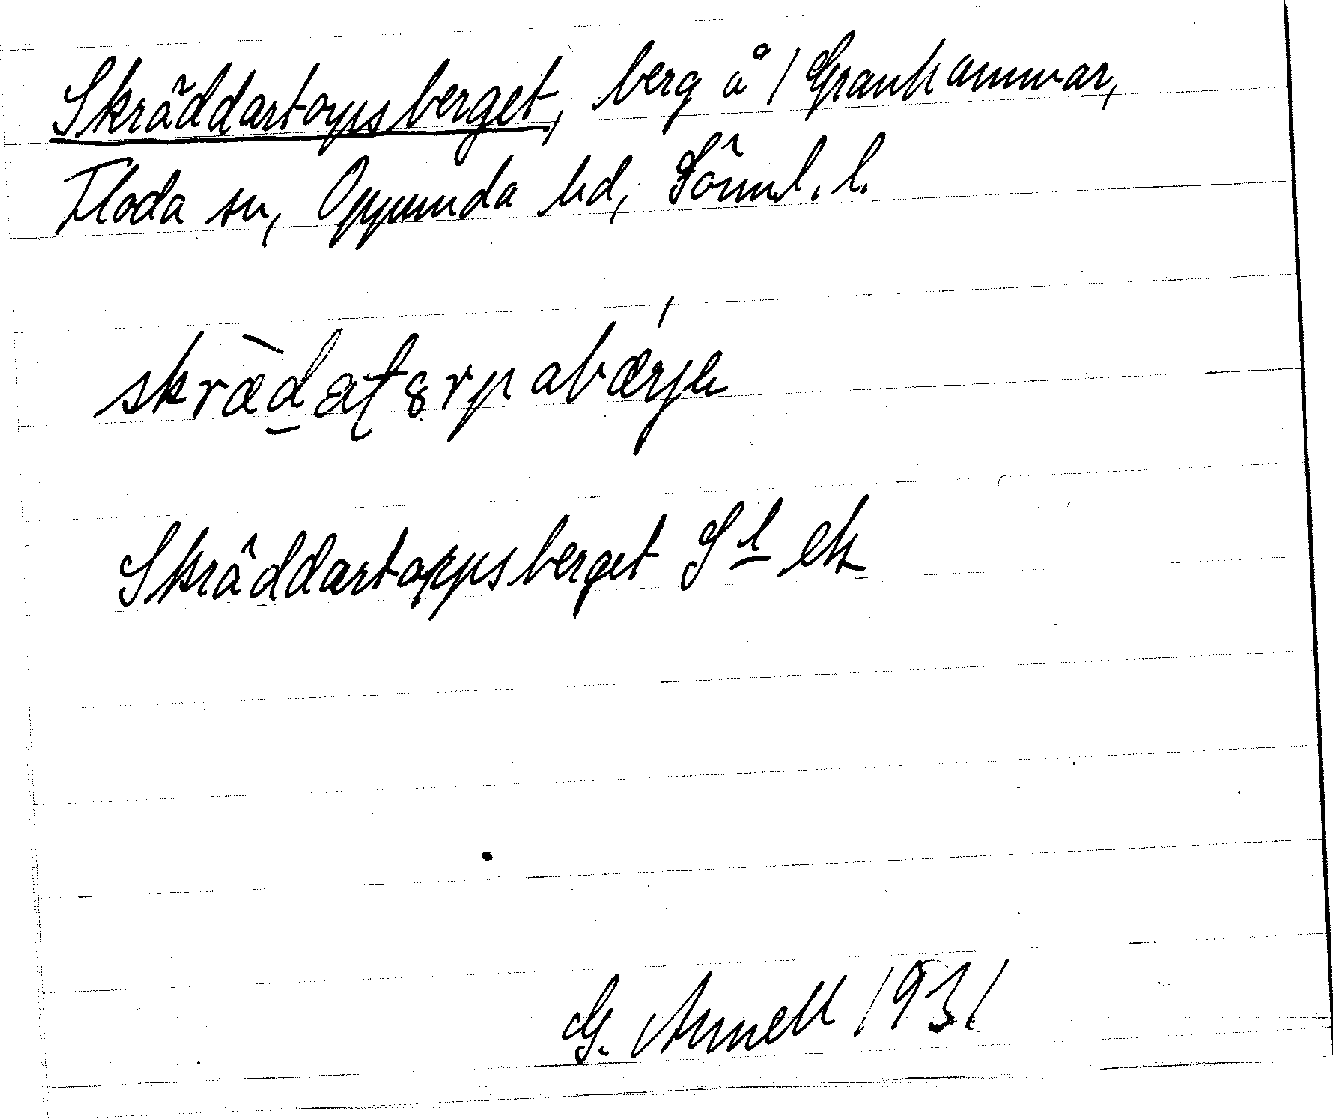 Skräddartorpsberget, berg å 1 Granhammar,
Floda sn, Oppunda hd, Sörml. l.
skræ̀dat
Skräddartorpsberget Gl ek
G. Arnell 1931